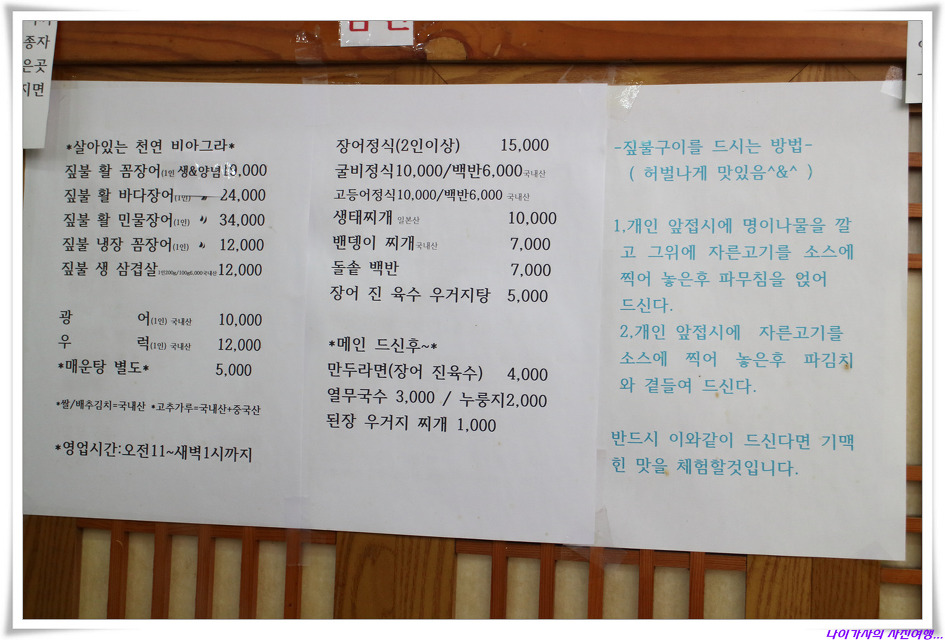 종자
은곳
지면
*살아있는 천연 비아그라*
짚불 활 꼼장어(1인 생&양념)
짚불 활 바다장어(1인) 〃 24,000
짚불 활 민물장어(1인) 〃 34,000
짚불 냉장 꼼장어(1인) 〃 12,000
짚불 생 삼겹살 12,000
광 어(1인) 국내산 10,000
우 럭(1인) 국내산 12,000
*매운탕 별도* 5,000
*쌀/배추김치=국내산 *고추가루=국내산+중국산
*영업시간:오전11~새벽1시까지
장어정식(2인이상) 15,000
굴비정식10,000/백반6,000국내산
고등어정식10,000/백반6,000 국내산
생태찌개 일본산 10,000
밴뎅이 찌개국내산 7,000
돌솥 백반 7,000
장어 진 육수 우거지탕 5,000
*메인 드신후~*
만두라면(장어 진육수) 4,000
열무국수 3,000 / 누룽지2,000
된장 우거지 찌개 1,000
-짚불구이를 드시는 방법-
( 허벌나게 맛있음^&^ )
1,개인 앞접시에 명이나물을 깔
고 그위에 자른고기를 소스에
찍어 놓은후 파무침을 얹어
드신다.
2,개인 앞접시에 자른고기를
소스에 찍어 놓은후 파김치
와 곁들여 드신다.
반드시 이와같이 드신다면 기맥
힌 맛을 체험할것입니다.
나이가사의 사진여행...